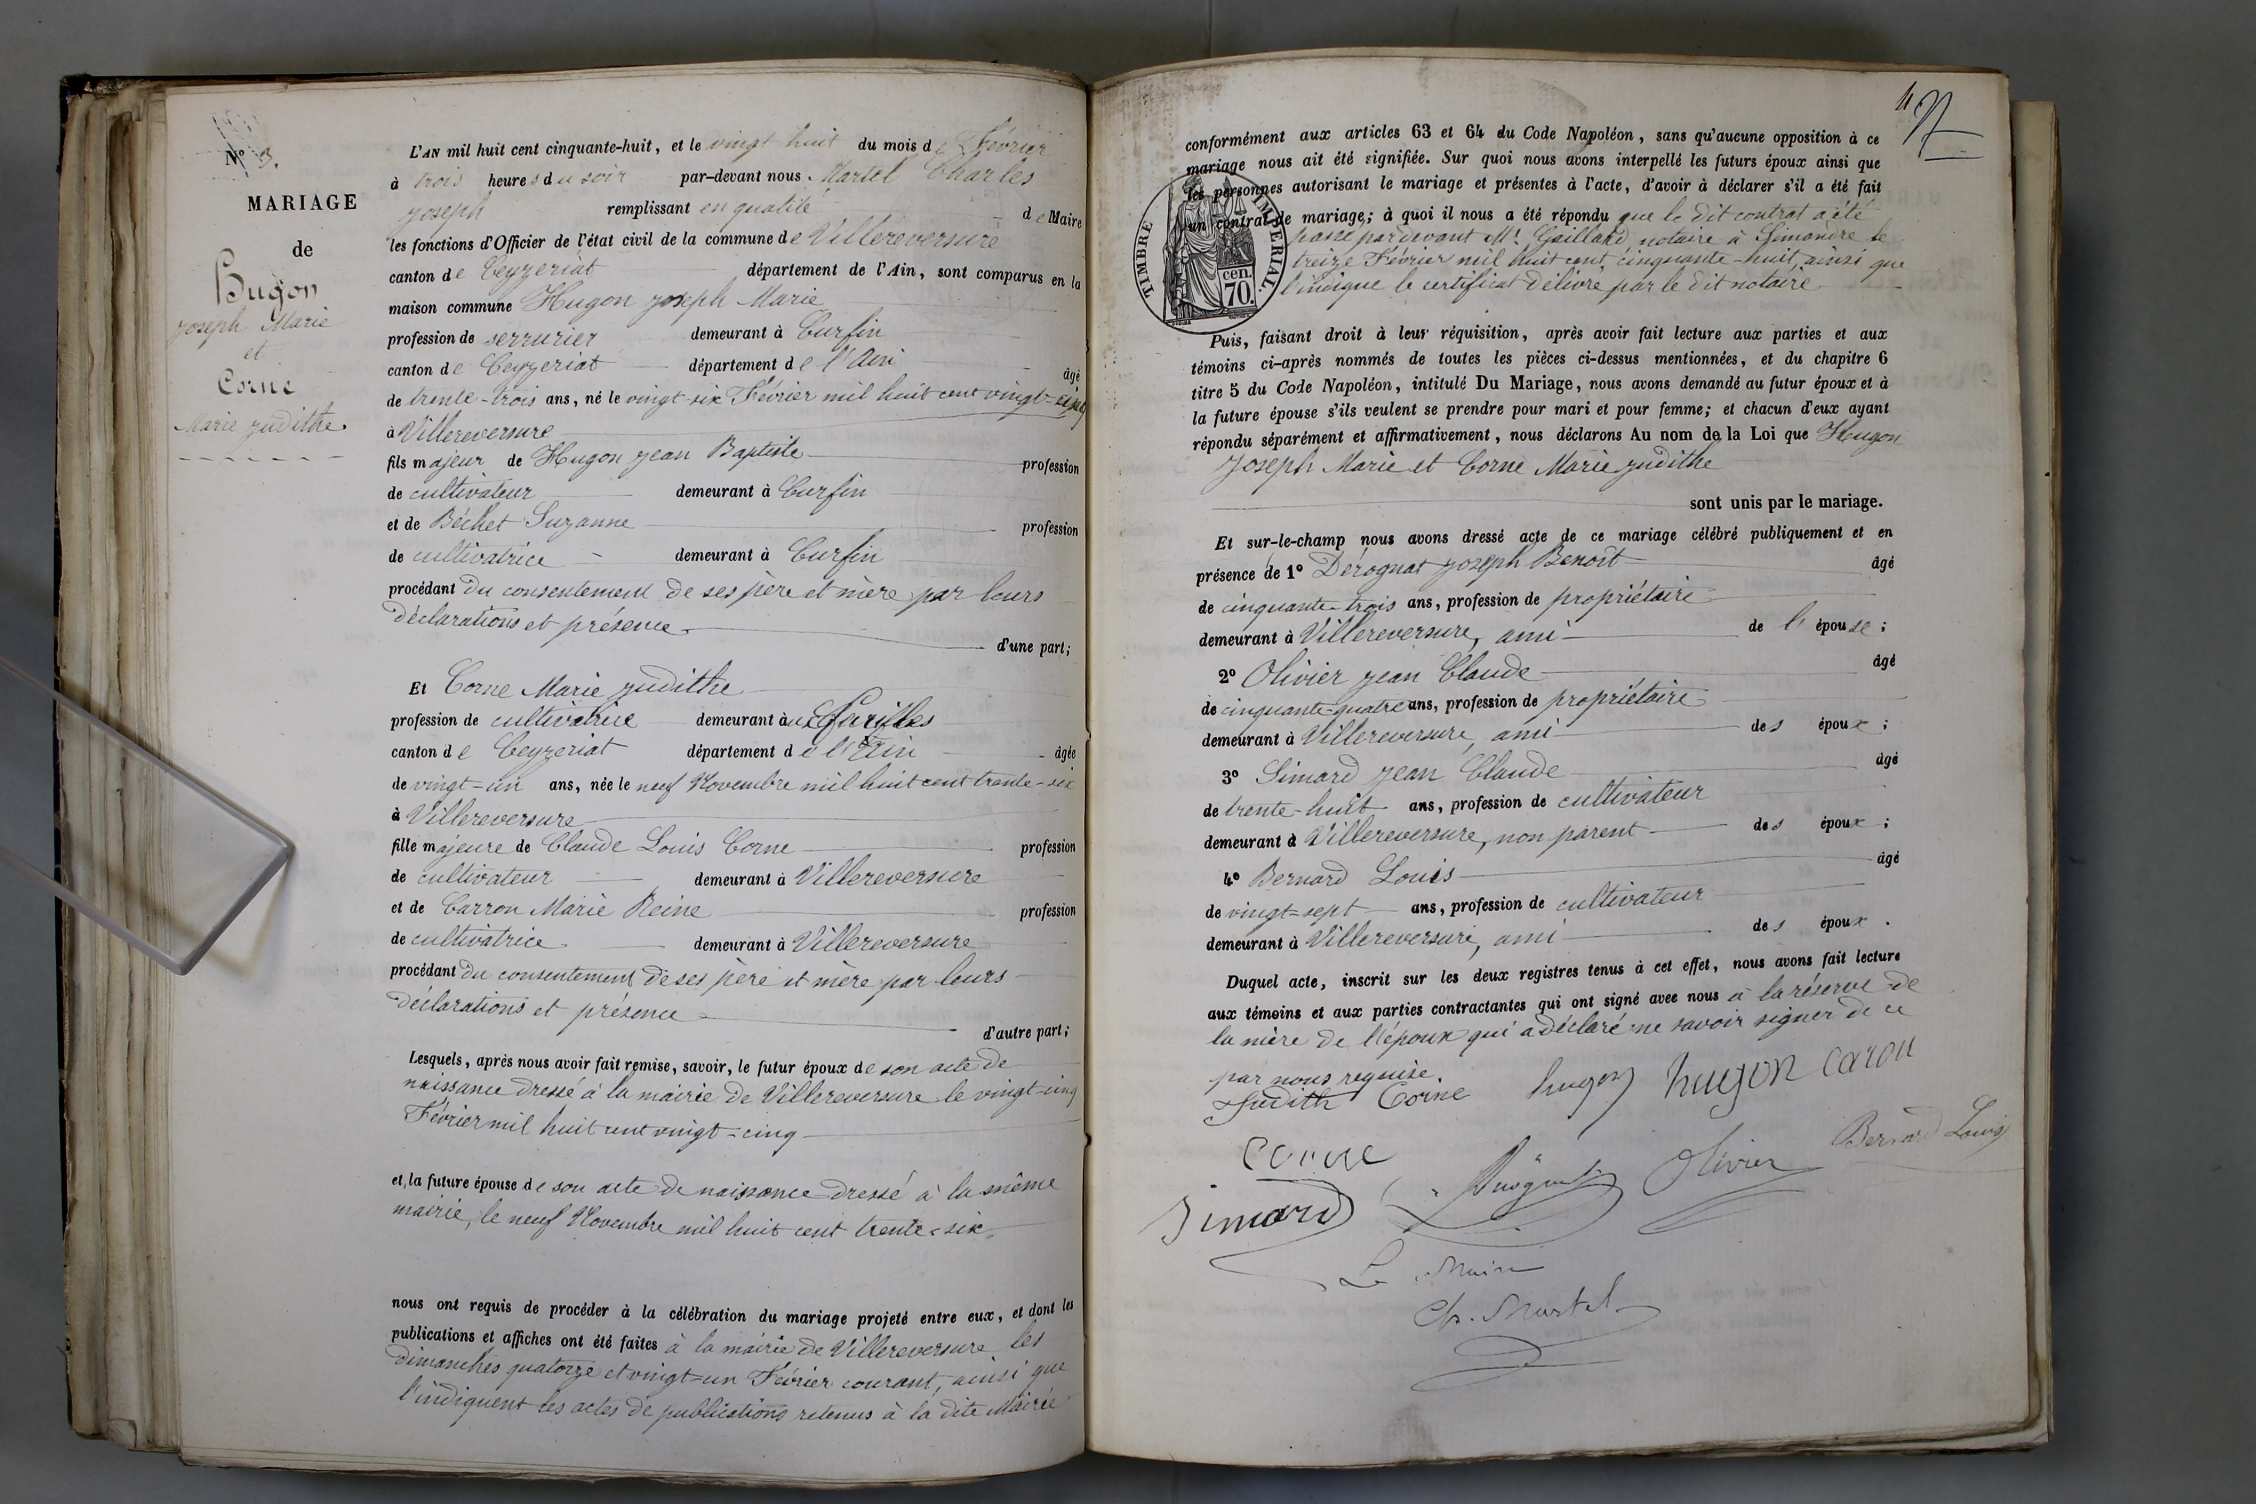 N° 3.
MARIAGE
de
Hugon
Joseph Marie
et
Corne
Marie Judithe.
L'AN mil huit cent cinquante-huit, et le vingt huit du mois de Février
à trois heures du soir par-devant nous Martel Charles
Joseph remplissant en qualité de Maire
les fonctions d'Officier de l'état civil de la commune de Villereversure
canton de Ceyzeriat département de l'Ain, sont comparus en la
maison commune Hugon Joseph Marie
profession de serrurier demeurant à Curfin
canton de Ceyzeriat département de l'Ain âgé
de trente-trois ans, né le vingt-six Février mil huit cent vingt-cinq
à Villereversure
fils majeur de Hugon Jean Baptiste profession
de cultivateur demeurant à Curfin
et de Béchet Suzanne profession
de cultivatrice demeurant à Curfin
procédant du consentement de ses père et mère par leurs
déclarations et présence d'une part;
Et Corne Marie Judithe
profession de cultivatrice demeurant aux
canton de Ceyzeriat département de l'Ain âgée
de vingt-un ans, née le neuf Novembre mil huit cent trente-six
à Villereversure
fille majeure de Claude Louis Corne profession
de cultivateur demeurant à Villereversure
et de Carron Marie Reine profession
de cultivatrice demeurant à Villereversure
procédant du consentement de ses père et mère par leurs
déclarations et présence d'autre part;
Lesquels, après nous avoir fait remise, savoir, le futur époux de son acte de
naissance dressé à la mairie de Villereversure le vingt-cinq
Février mil huit cent vingt-cinq
et la future épouse de son acte de naissance dressé à la même
mairie, le neuf Novembre mil huit cent trente-six
nous ont requis de procéder à la célébration du mariage projeté entre eux, et dont les
publications et affiches ont été faites à la mairie de Villereversure les
dimanches quatorze et vingt-un Février courant, ainsi que
l'indiquent les actes de publications retenus à la dite Mairie
conformément aux articles 63 et 64 du Code Napoléon, sans qu'aucune opposition à ce
mariage nous ait été signifiée. Sur quoi nous avons interpellé les futurs époux ainsi que
les personnes autorisant le mariage et présentes à l'acte, d'avoir à déclarer s'il a été fait
un contrat de mariage; à quoi il nous a été répondu que le dit contrat a été
passé pardevant Mr. Gaillard, notaire à Simandre le
treize Février mil huit cent cinquante-huit, ainsi que
l'indique le certificat délivré par le dit notaire
TIMBRE IMPERIAL.
70. cen.
Puis, faisant droit à leur réquisition, après avoir fait lecture aux parties et aux
témoins ci-après nommés de toutes les pièces ci-dessus mentionnées, et du chapitre 6
titre 5 du Code Napoléon, intitulé Du Mariage, nous avons demandé au futur époux et à
la future épouse s'ils veulent se prendre pour mari et pour femme; et chacun d'eux ayant
répondu séparément et affirmativement, nous déclarons Au nom de la Loi que Hugon
Joseph Marie et Corne Marie Judithe
sont unis par le mariage.
Et sur-le-champ nous avons dressé acte de ce mariage célébré publiquement et en
présence de 1° Dérognat Joseph Benoît âgé
de cinquante-trois ans, profession de propriétaire
demeurant à Villereversure, ami de l'épouse;
2° Olivier Jean Claude âgé
de cinquante-quatre ans, profession de propriétaire
demeurant à Villereversure, ami des époux;
3° Simard Jean Claude âgé
de trente-huit ans, profession de cultivateur
demeurant à Villereversure, non parent des époux;
4° Bernard Louis âgé
de vingt-sept ans, profession de cultivateur
demeurant à Villereversure, ami des époux.
Duquel acte, inscrit sur les deux registres tenus à cet effet, nous avons fait lecture
aux témoins et aux parties contractantes qui ont signé avec nous à la réserve de
la mère de l'époux qui a déclaré ne savoir signer de ce
par nous requise.
Judith Corne hugon hugon caron
Corne Olivier Bernard Louis
Simard
Le Maire
Ch. Martel